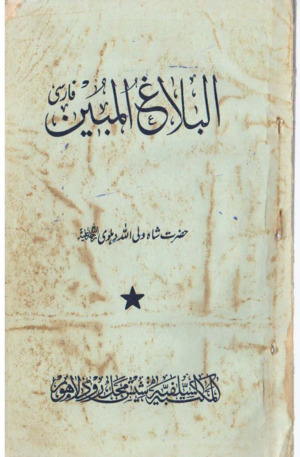 البلاغ المبین فارسی
حضرت شاہ ولی اللہ دہلوی
المکتبۃ السلفیۃ شیش محل روڈ لاہور